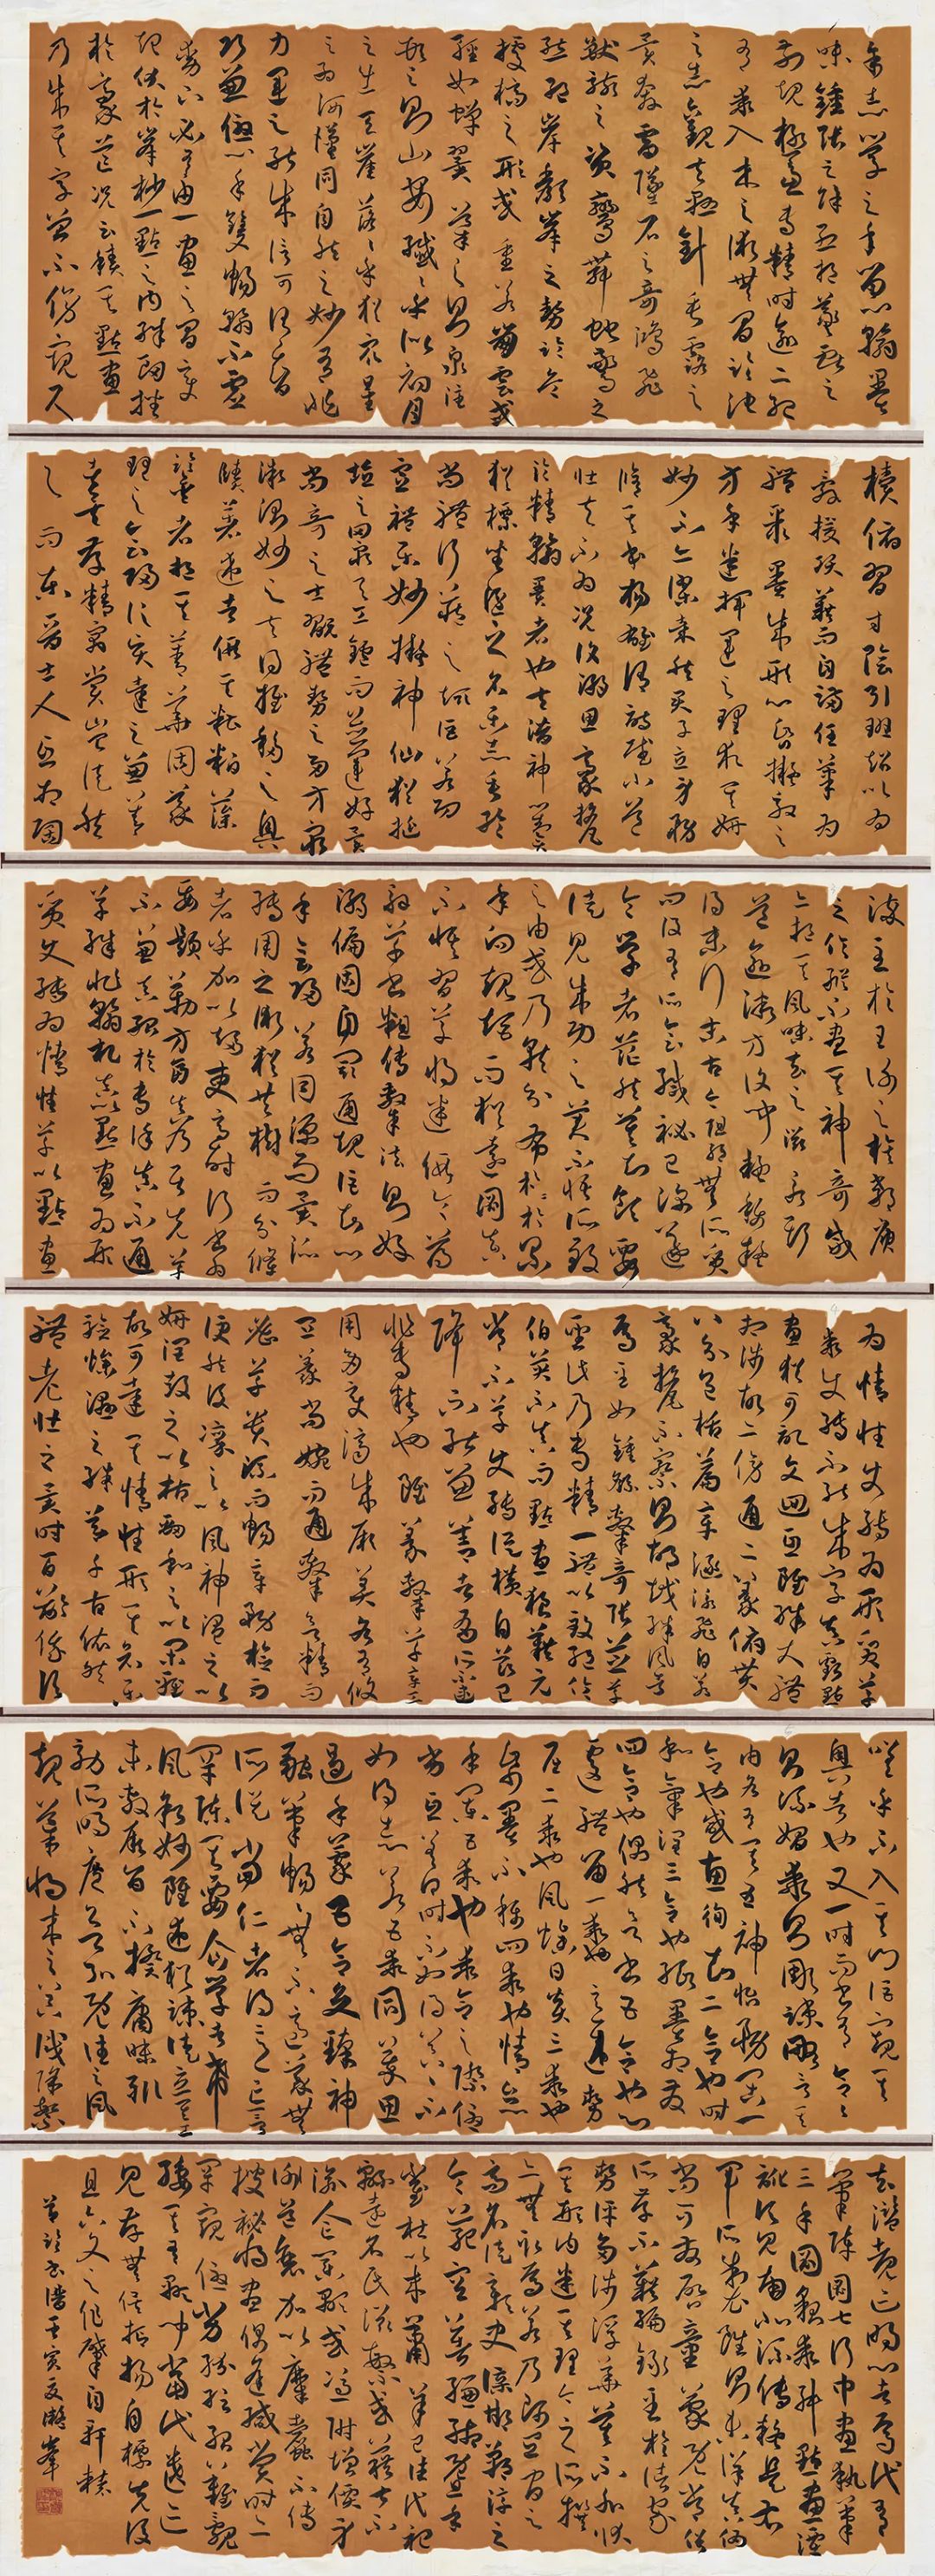 余志學之年留心翰墨
味鍾張之餘烈挹羲獻之
前規極慮專精時逾二紀
有乖入木之術無間臨池
之志觀夫懸針垂露之
異奔雷墜石之奇鴻飛
獸駭之資鸞舞蛇驚之
態絕岸頹峯之勢臨危
據槁之形或重若崩雲或
輕如蟬翼導之則泉注
頓之則山安纖纖乎似初月
之出天崖落落乎猶衆星
之列河漢同自然之妙有非
力運之能成信可謂智
巧兼優心手雙暢翰不虛
動下必有由一畫之間變
起伏於峯杪一點之內殊衄挫
於毫芒況云積其點畫
乃成其字曾不傍窺尺
牘俯習寸陰引班超以為
辭援項籍而自滿任筆為
體聚墨成形心昏擬效之
方手迷揮運之理求其妍
妙不亦謬哉然君子立身務
脩其本楊雄謂詩賦小道
壯夫不為況復溺思豪氂
淪精翰墨者也夫潛神對奕
猶標坐隱之名樂志垂綸
尚體行藏之趣詎若功
宣禮樂妙擬神仙猶挻
埴之罔窮與工鑪而並運好異
尚奇之士翫體勢之多方窮
微測妙之夫得推移之奧
賾著述者假其糟粕藻
鑒者挹其菁華固義
理之會歸信賢達之兼善
者矣存精寓賞豈徒然
與而東晉士人互相陶
淬至於王謝之族郗庾
之倫縱不盡其神奇咸
亦挹其風味去之滋永斯
道愈微方復聞疑稱疑
得末行末古今阻絕無所質
問設有所會緘秘已深遂
令學者茫然莫知領要
徒見成功之美不悟所致
之由或乃就分布於累
年向規矩而猶遠圖真
不悟習草將迷假令薄
解草書粗傳隸法則好
溺偏固自閡通規詎知心
手會歸若同源而異派
轉用之術猶共樹而分條
者乎加以趨吏適時行書為
要題勒方畐真乃居先草
不兼真殆於專謹真不通
草殊非翰札真以點畫為形
質使轉為情性草以點畫
為情性使轉為形質草
乖使轉不能成字真虧點
畫猶可記文迴互雖殊大體
相涉故亦傍通二篆俯貫
八分包括篇章涵泳飛白若
豪氂不察則胡越殊風者
焉至如鍾繇隸奇張芝草
聖此乃專精一體以致絕倫
伯英不真而點畫狼藉元
常不草使轉縱橫自茲已
降不能兼善者有所不逮
非專精也雖篆隸草章工
用多變濟成厥美各有攸
宜篆尚婉而通隸欲精而
密草貴流而暢章務檢而
便然後凜之以風神溫之以
妍潤鼓之以枯勁和之以閑雅
故可達其情性形其哀樂
驗燥濕之殊節千古依然
體老壯之異時百齡俄頃
嗟乎不入其門詎窺其
奧者也又一時而書有乖有合合
則流媚乖則雕疏略言其
由各有其五神怡務閑一
合也感惠徇知二合也時
和氣潤三合也紙墨相發
四合也偶然欲書五合也心
遽體留一乖也意違勢
屈二乖也風燥日炎三乖也
紙墨不稱四乖也情怠
手闌五乖也乖合之際優
劣互差得時不如得器得器不
如得志若五乖同萃思
遏手蒙五合交臻神
融筆暢暢無不適蒙無
所從當仁者得意忘言
罕陳其要企學者希
風敘妙雖述猶疏徒立其工
未敷厥旨不揆庸昧輒
効所明庶欲弘既往之風
規導將來之器識除繁
去濫覩迹明心者焉代有
筆陣圖七行中畫執筆
三手圖貌乖舛點畫湮
訛頃見南北流傳疑是右
軍所製雖則未詳真偽
尚可發啓童蒙既常俗
所存不藉編錄至於諸家
勢評多涉浮華莫不外狀
其形內迷其理今之所撰
亦無取焉若乃師宜官之
高名徒彰史牒邯鄲淳之
令範空著縑緗暨乎
崔杜以來蕭羊已往代祀
緜遠名氏滋繁或藉甚不
渝人亡業顯或憑附增價身
謝道衰加以糜蠹不傳
搜秘將盡偶逢緘賞時亦
罕窺優劣紛紜殆難覼
縷其有顯聞當代遺迹
見存無俟抑揚自標先後
且六文之作肇自軒轅
節臨書譜壬寅夏峯